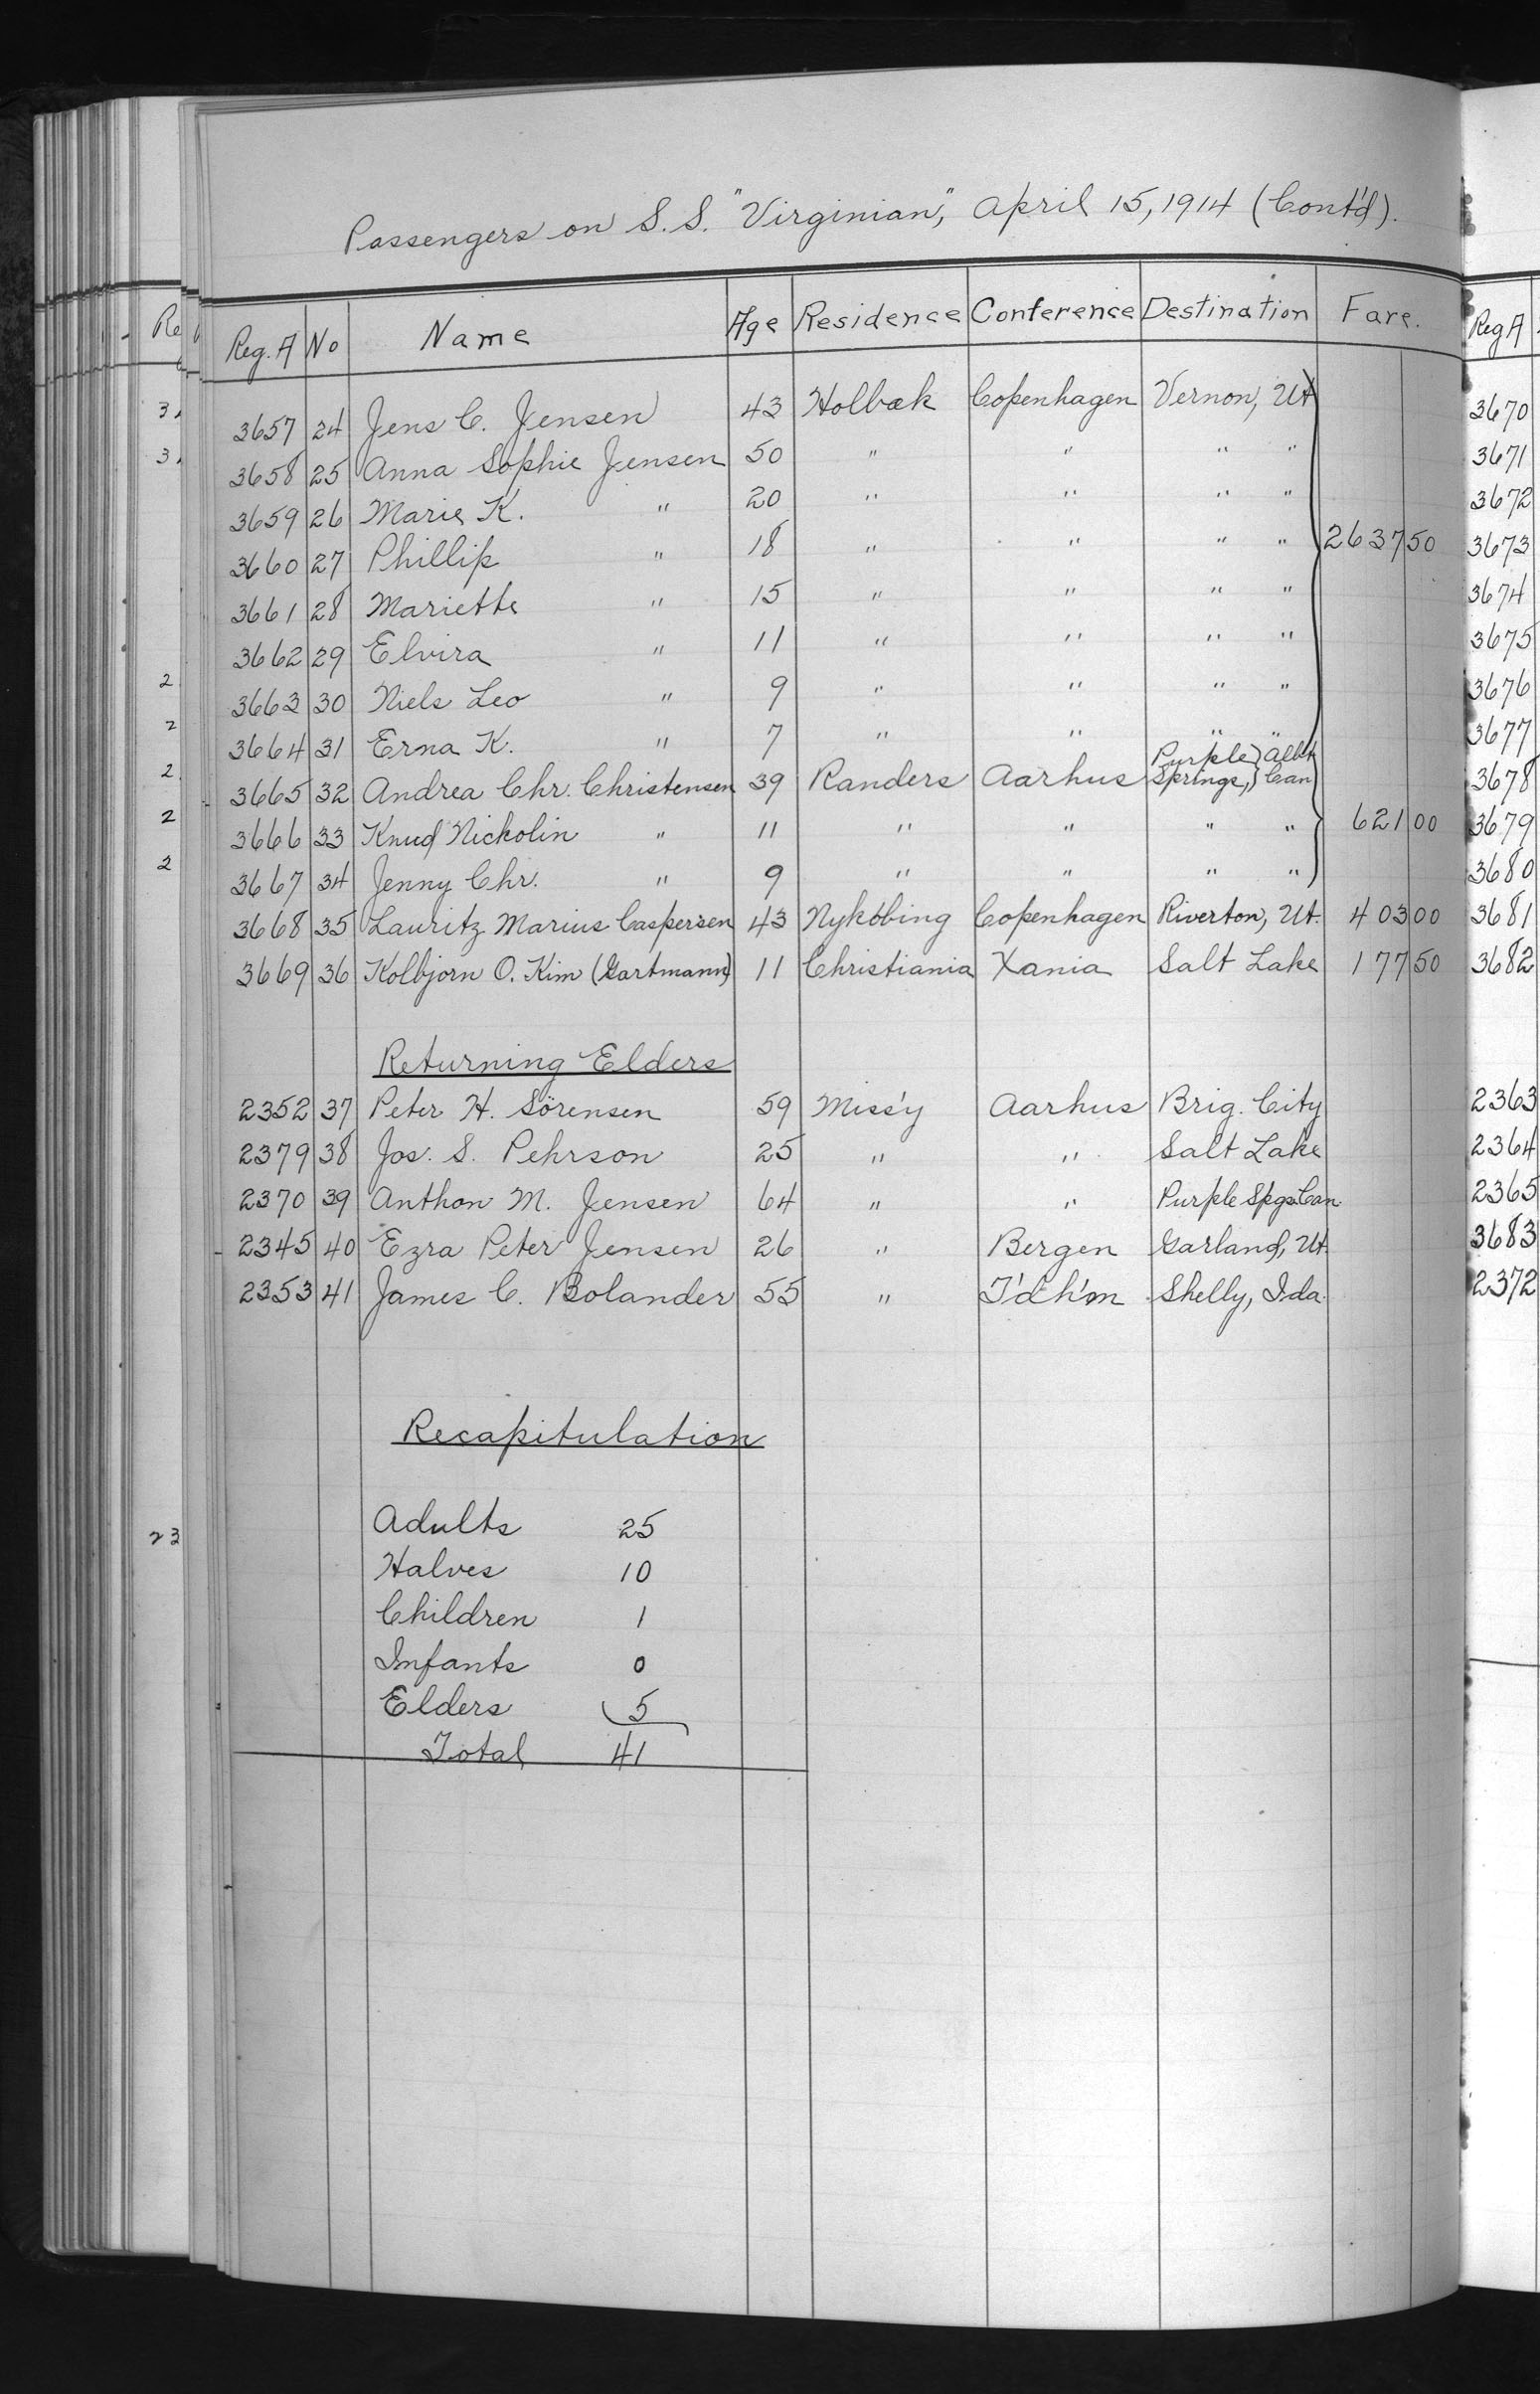 Passengers on S.S. "Virginian," April 15, 1914 (Cont'd).
Reg. A No Name Age Residence Conference Destination Fare.
3657 24 Jens C. Jensen 43 Holbæk Copenhagen Vernon, Ut
3658 25 Anna Sophie Jensen 50 " " " "
3659 26 Marie K. " 20 " " " "
3660 27 Phillip " 18 " " " " 2637 50
3661 28 Mariette " 15 " " " "
3662 29 Elvira " 11 " " " "
3663 30 Niels Leo " 9 " " " "
3664 31 Erna K. " 7 " " " "
3665 32 Andrea Chr. Christensen 39 Randers Aarhus Purple Springs, Albt Can
3666 33 Knud Nickolin " 11 " " " " 621 00
3667 34 Jenny Chr. " 9 " " " "
3668 35 Lauritz Marius Caspersen 43 Nyköbing Copenhagen Riverton, Ut. 403 00
3669 36 Kolbjorn O. Kim (Gartmann) 11 Christiania Xania Salt Lake 177 50
Returning Elders
2352 37 Peter H. Sörensen 59 Miss'y Aarhus Brig. City
2379 38 Jos. S. Pehrson 25 " " Salt Lake
2370 39 Anthon M. Jensen 64 " " Purple Spgs Can.
2345 40 Ezra Peter Jensen 26 " Bergen Garland, Ut.
2353 41 James C. Bolander 55 " T'dh'm Shelly, Ida.
Recapitulation
Adults 25
Halves 10
Children 1
Infants 0
Elders 5
Total 41
Reg A
3670
3671
3672
3673
3674
3675
3676
3677
3678
3679
3680
3681
3682
2363
2364
2365
3683
2372